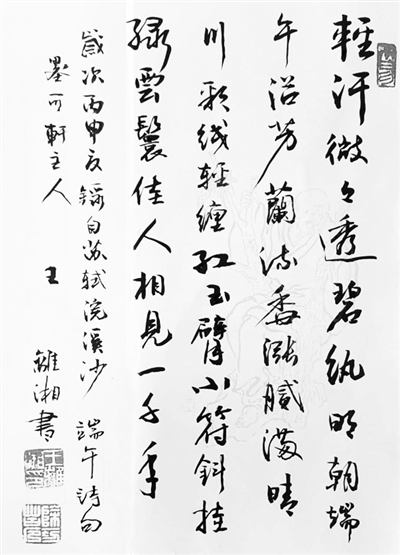 輕汗微々透碧紈明朝端
午浴芳蘭流香漲膩滿晴
川彩线輕纏红玉臂小符斜挂
绿雲鬟佳人相見一千年
歲次丙申夏錄自苏轼浣溪沙 端午詩句
墨可軒主人 王離湘書